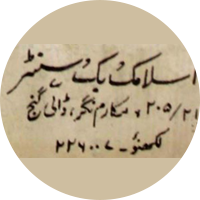 اسلامک بک سنٹر
۲۰۵/۲۱، مکارم نگر، ڈالی گنج
لکھنؤ - ۲۲۶۰۰۷